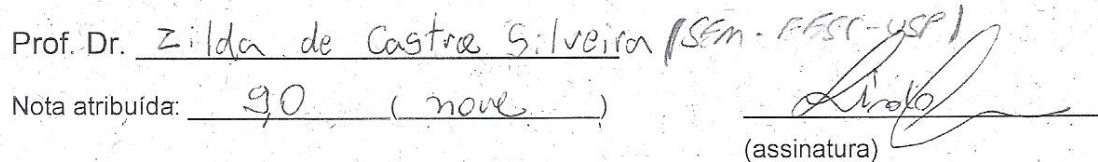 Prof. Dr. Zilda de Castro Silveira (SEM - EESC-USP)
Nota atribuída: 9,0 (nove)
(assinatura)